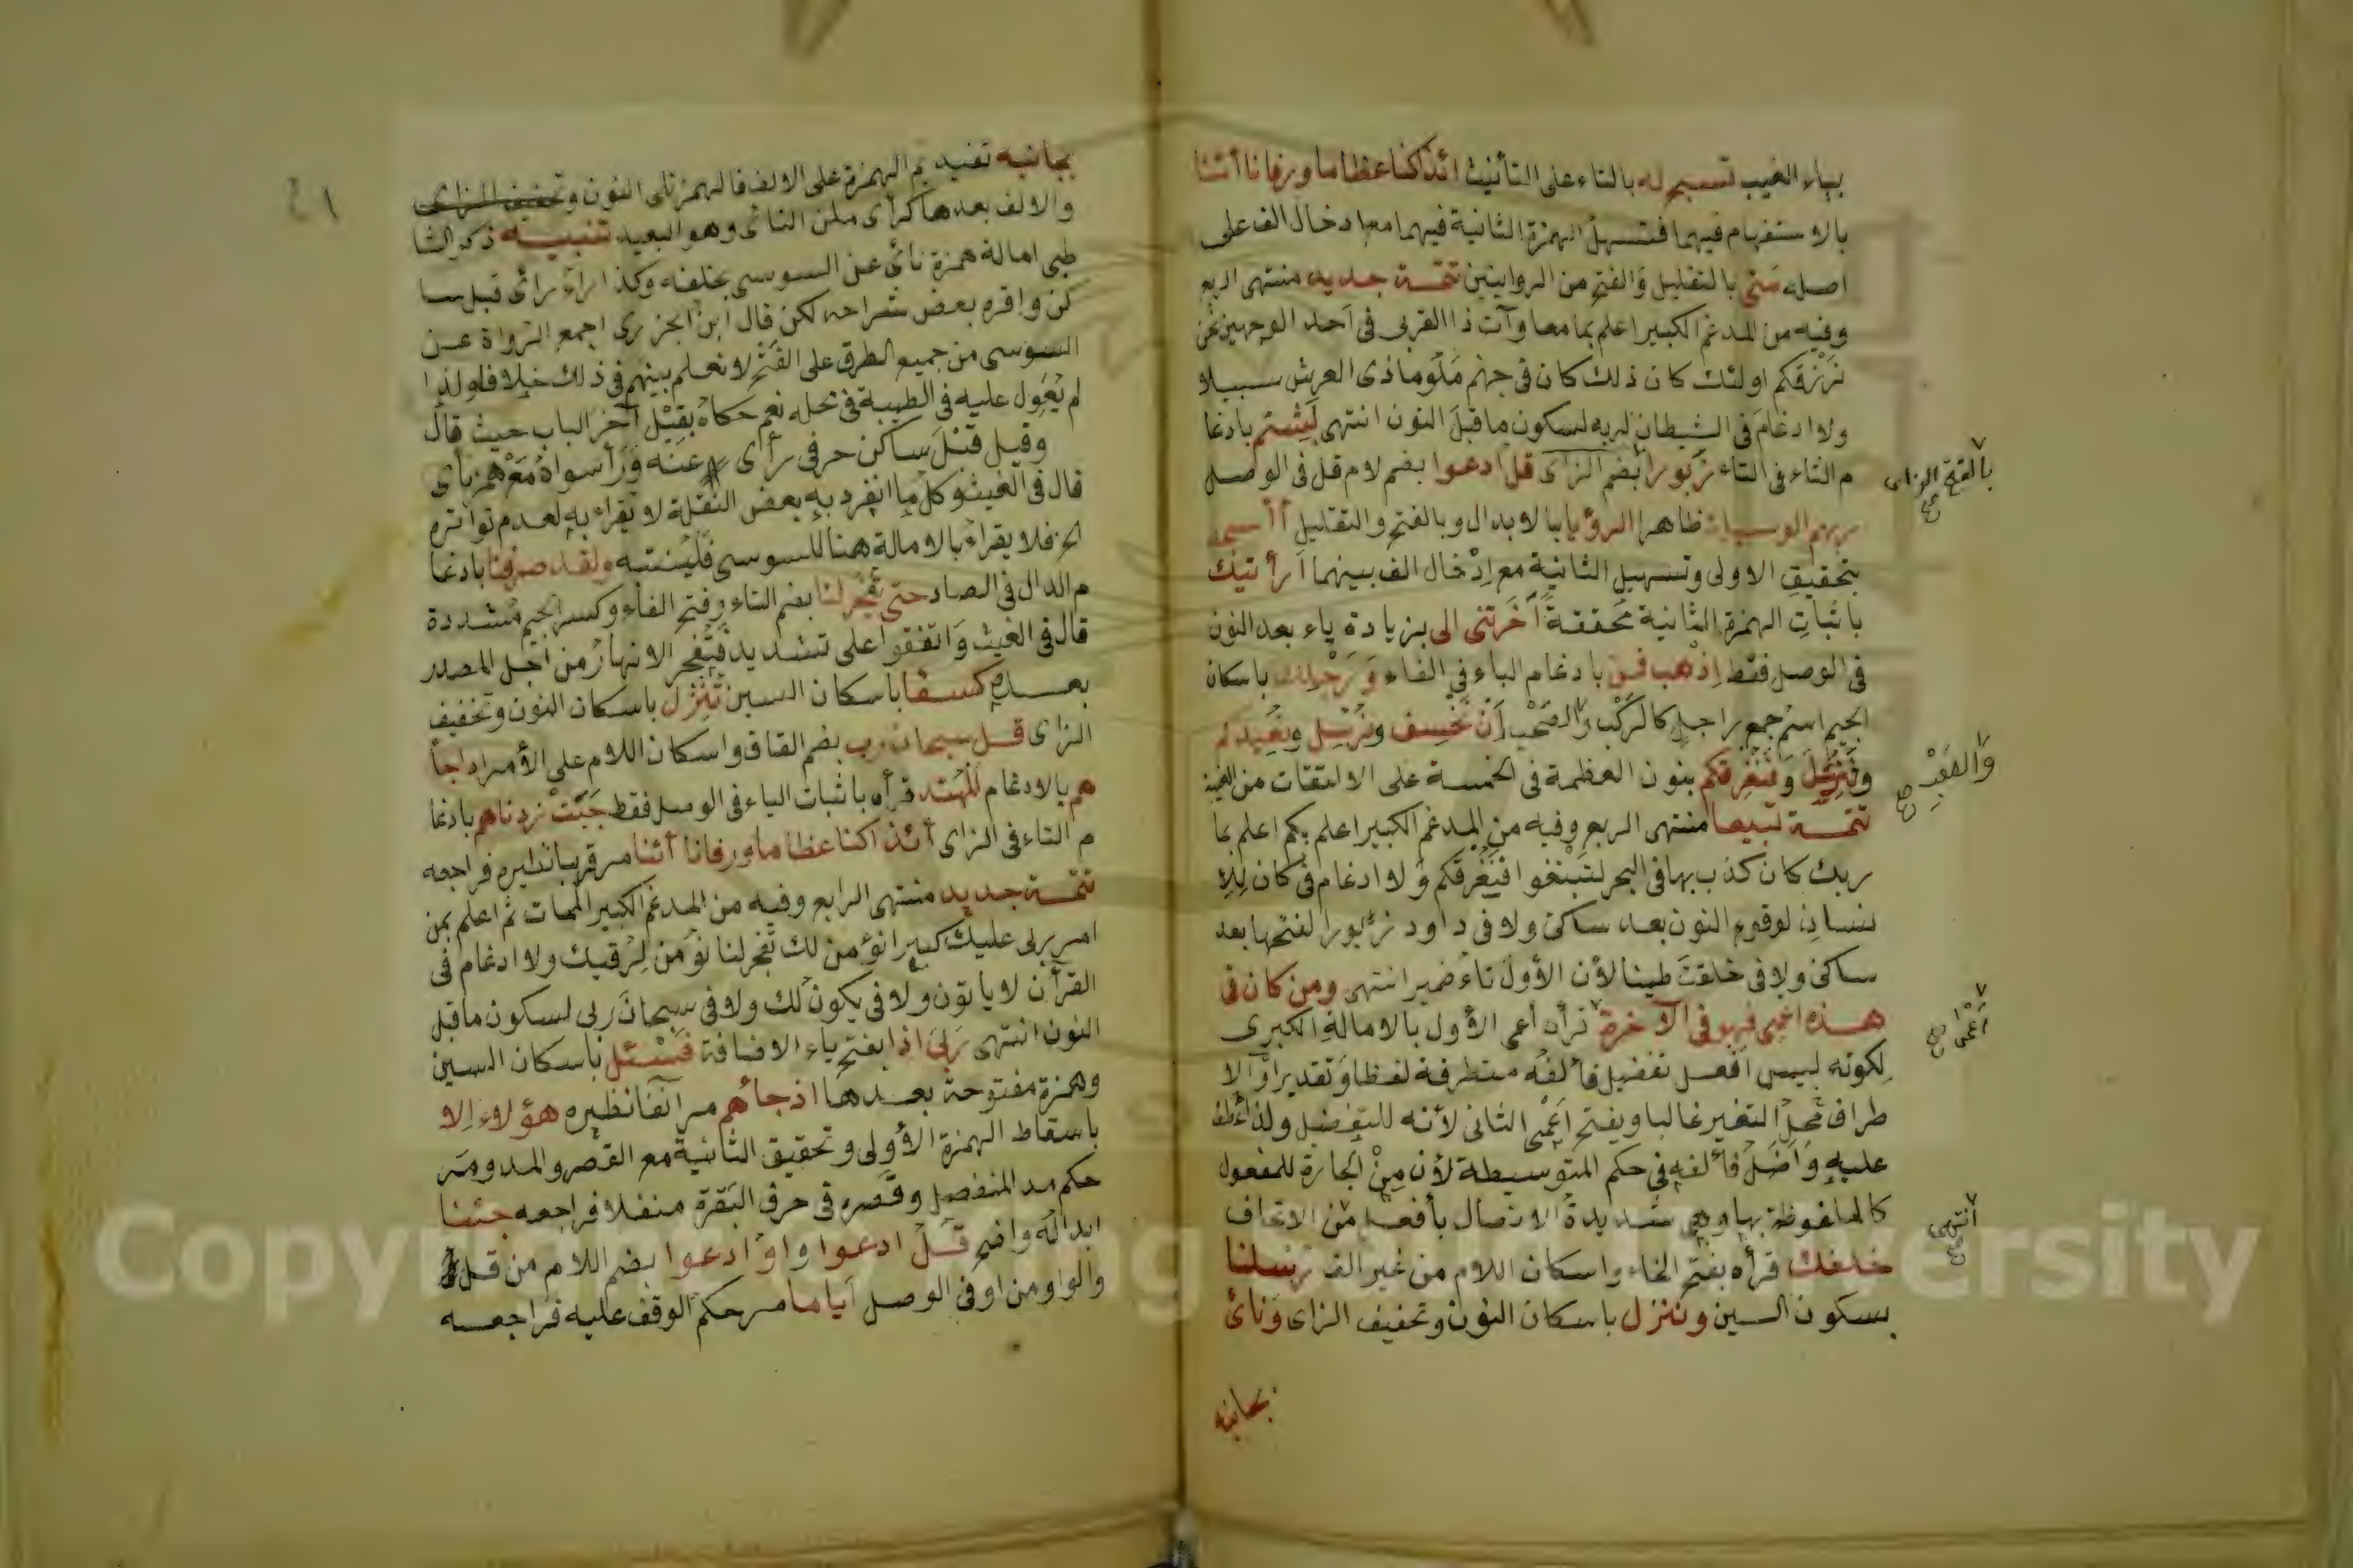 بياء الغيب تسبح له بالتاء على التأنيث ائذا كنا عظاما ورفاتا أئنا
بالاستفهام فيهما فتسهل الهمزة الثانية فيهما مع ادخال الف على
اصله متى بالتقليل والفتح من الروايتين تتمة جديدا منتهى الربع
وفيه من المدغم الكبير اعلم بما معا وآت ذا القربى فى احد الوجهين نحن
نرزقكم اولئك كان ذلك كان فى جهنم ملوما ذى العرش سبيلا
ولا ادغام فى الشيطان لربه لسكون ما قبل النون انتهى لبثتم بادغا
م الثاء فى التاء زبورا بضم الزاى قل ادعوا بضم لام قل فى الوصل
بالفتح الزاى صح
ربهم الوسيلة ظاهر الرؤيا بالابدال وبالفتح والتقليل أأسجد
بتحقيق الاولى وتسهيل الثانية مع ادخال الف بينهما أرأيتك
باثبات الهمزة الثانية محققة أخرتنى الى بزيادة ياء بعد النون
فى الوصل فقط اذهب فمن بادغام الباء فى الفاء ورجلك باسكان
الجيم اسم جمع راجل كالركب والصحب أن نخسف ونرسل ونعيدكم
وفنرسل وفنغرقكم بنون العظمة فى الخمسة على الالتفات من الغيبة
تتمة تبيعا منتهى الربع وفيه من المدغم الكبير اعلم بكم اعلم بما
ربك كان كذب بها فى البحر لتبتغوا فنغرقكم ولا ادغام فى كان للا
نسان لوقوع النون بعد ساكن ولا فى داود زبورا لفتحها بعد
ساكن ولا فى خلقت طينا لأن الأول تاء ضمير انتهى ومن كان فى
هذه اعمى فهو فى الآخرة قرأ أعمى الأول بالامالة الكبرى
اعمى صح
لكونه ليس افعل تفضيل فألفه متطرفة لفظا وتقديرا والا
طراف محل التغير غالبا ويفتح اعمى الثانى لأنه للتفضيل ولذا عطف
عليه واضل فألفه فى حكم المتوسطة لأن من الجارة للمفعول
كالملفوظة بها وهى شديدة الاتصال بأفعل من الاتحاف
انتهى صح
خلفك قرأه بفتح الخاء واسكان اللام من غير الف رسلنا
بسكون السين وننزل باسكان النون وتخفيف الزاى ونأى
بجانبه
بجانبه تقديم الهمزة على الالف فالهمز تلى النون وتخفيف الزاى
والالف بعدها كرأى من النأى وهو البعيد تنبيه ذكر الشا
طبى امالة همزة نأى عن السوسى بخلفه وكذا راء رأى قبل سا
كن واقره بعض شراحه لكن قال ابن الجزرى اجمع الرواة عن
السوسى من جميع الطرق على الفتح لا نعلم بينهم فى ذلك خلافا ولذا
لم يعول عليه فى الطيبة فى محله نعم حكاه بقيل آخر الباب حيث قال
وقيل قبل ساكن حرفى رأى عنه ورأ سواه مع همز نأى
قال فى الغيث وكل ما انفرد به بعض النقلة لا يقراء به لعدم تواتره
الخ فلا يقراء بالامالة هنا للسوسى فليتنبه ولقد صرفنا بادغا
م الدال فى الصاد حتى تفجر لنا بضم التاء وفتح الفاء وكسر الجيم مشددة
قال فى الغيث واتفقوا على تشديد فتفجر الانهار من اجل المصدر
بعده كسفا باسكان السين تنزل باسكان النون وتخفيف
الزاى قل سبحان رب بضم القاف واسكان اللام على الأمر اذ جاء
هم بالادغام المهتد قرأه باثبات الياء فى الوصل فقط خبت زدناهم بادغا
م التاء فى الزاى أئذا كنا عظاما ورفاتا أئنا مر قريبا نظيره فراجعه
تتمة جديدا منتهى الرابع وفيه من المدغم الكبير الممات ثم اعلم بمن
امر ربى عليك كبيرا نؤمن لك تفجر لنا نؤمن لرقيك ولا ادغام فى
القرآن لا يأتون ولا فى يكون لك ولا فى سبحان ربى لسكون ما قبل
النون انتهى ربى اذا بفتح ياء الاضافة فسئل باسكان السين
وهمزة مفتوحة بعدها اذ جاءهم مر آنفا نظيره هؤلاء الا
باسقاط الهمزة الأولى وتحقيق الثانية مع القصر والمد ومر
حكم مد المنفصل وقصره فى حرف البقرة منفلا فراجعه جئنا
ابداله واضح قل ادعوا واو ادعوا بضم اللام من قل
والواو من او فى الوصل اياما مر حكم الوقف عليه فراجعه
Copyright King Saud University